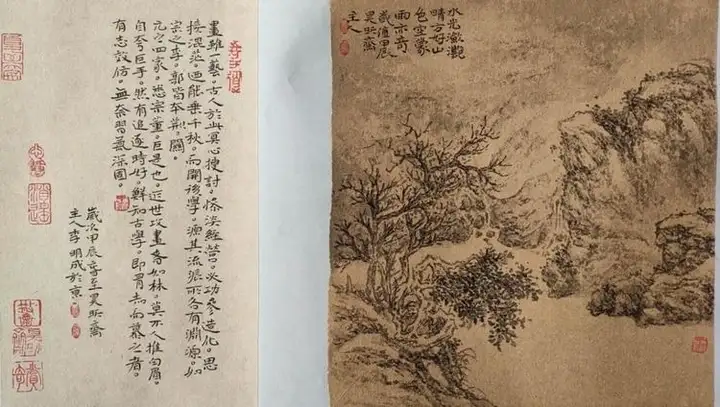 水光瀲灩
晴方好山
色空蒙
雨亦奇
歲值甲辰
昊昕齋
主人
畫雖一藝。古人於此冥心搜討。慘淡經營。必功參造化。思
接混茫。迺能垂千秋。而開後學。源其流派。所各有淵源。如
宋之李。郭皆本荊。關。
元之四家。悉宗董。巨是也。近世攻畫者如林。莫不人推白眉。
自夸巨手。然有追逐時好。鮮知古學。即有志向慕之者。
有志效仿。無奈習氣深固。
歲次甲辰冬至昊昕齋
主人李明成於京。